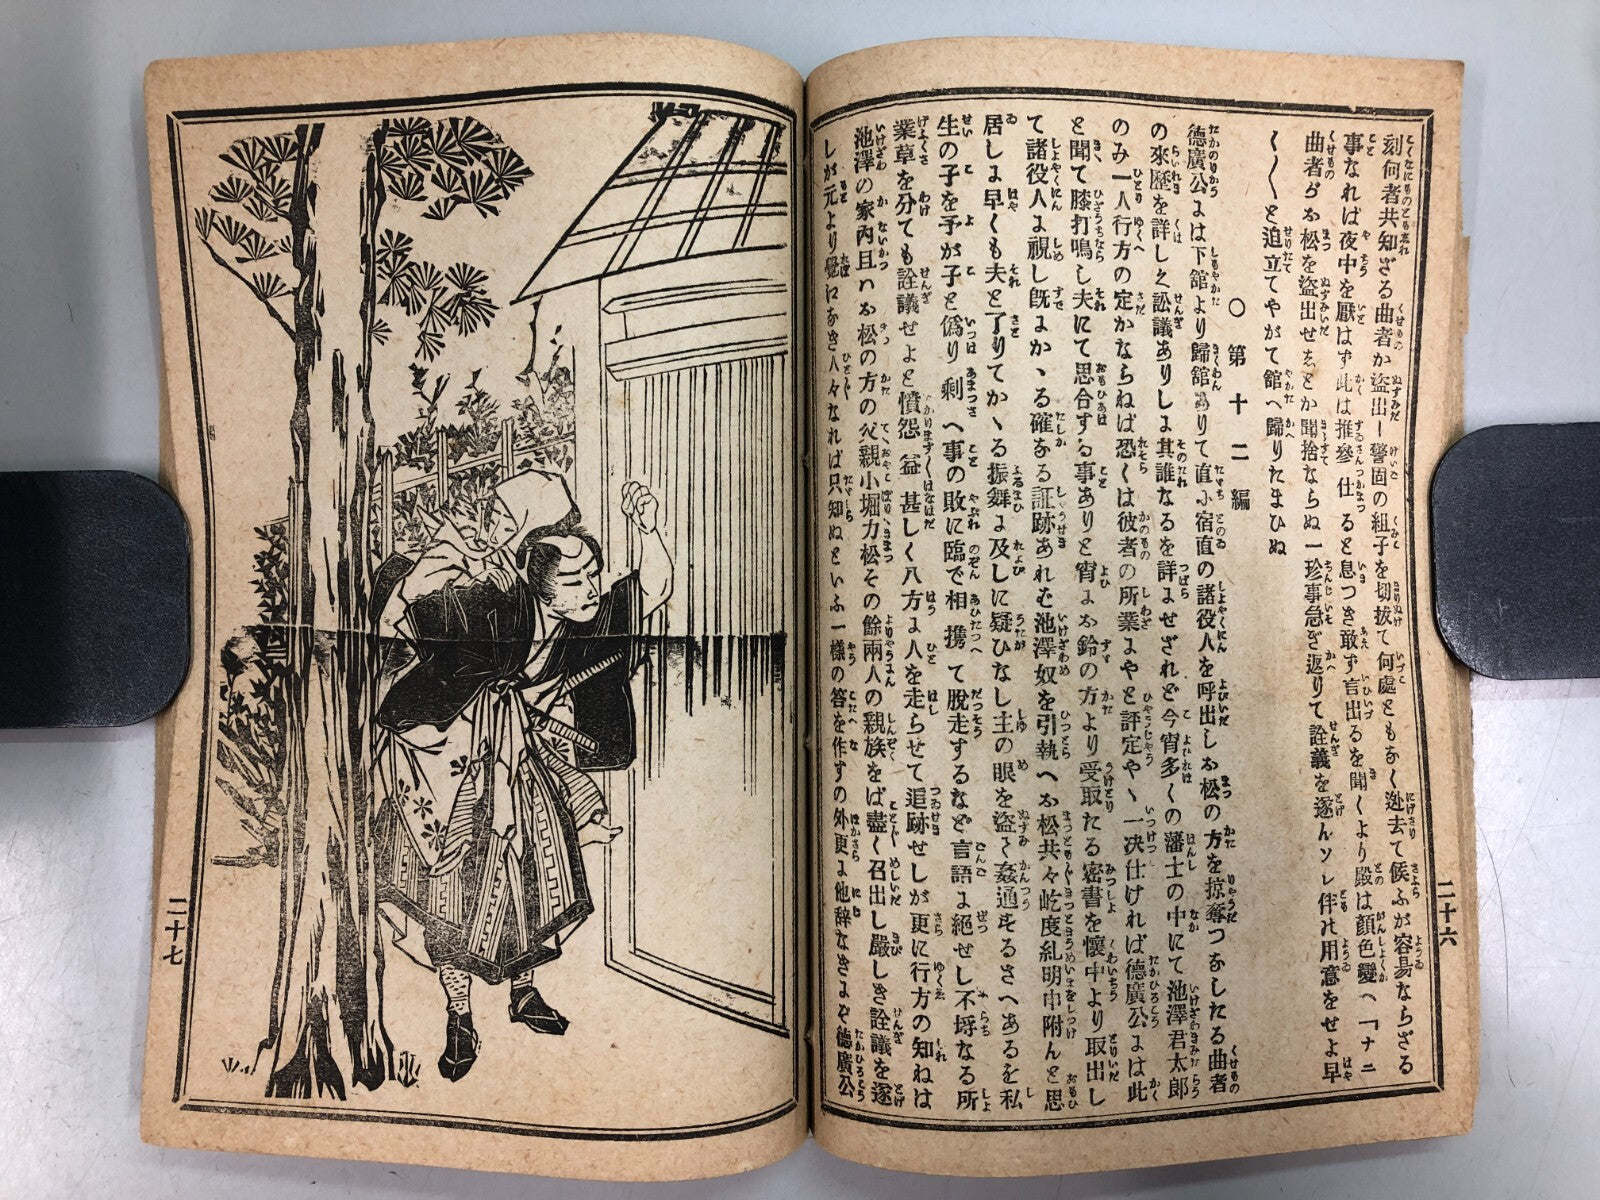 刻何者共知ざる曲者か盜出し警固の組子を切拔て何處ともなく迯去て候ふが容昜ならざる
事なれば夜中を厭はず此は推參仕ると息つき敢ず言出るを聞くより殿は顏色變へ「ナニ
曲者がお松を盜出せしとか聞捨ならぬ一珍事急ぎ返りて詮義を遂んソレ伴の用意をせよ早
く〳〵と迫立てやがて舘へ歸りたまひぬ
〇第十二編
德廣公には下舘より歸舘ありて直に宿直の諸役人を呼出しお松の方を掠奪つをしたる曲者
の來歷を詳しく訟議ありしに其誰なるを詳にせざれど今宵多くの藩士の中にて池澤君太郎
のみ一人行方の定かならねば恐くは彼者の所業にやと評定やゝ一决仕ければ德廣公には此
と聞て膝打鳴し夫にて思合する事ありと宵にお鈴の方より受取たる密書を懷中より取出し
て諸役人に視し旣にかゝる確なる証跡あれむ池澤奴を引執へお松共々屹度糺明申附んと思
居しに早くも夫と了りてかゝる振舞に及しに疑ひなし主の眼を盜て姦通せるさへあるを私
生の子を予が子と僞り剩へ事の敗に臨で相携て脫走するなど言語に絕せし不埒なる所
業草を分ても詮議せよと憤怨益甚しく八方に人を走らせて追跡せしが更に行方の知ねは
池澤の家內且ハお松の方の父親小堀力松その餘兩人の親族をば盡く召出し嚴しき詮議を遂
しが元より覺になき人々なれば只知ぬといふ一樣の答を作すの外更に他辭なきにぞ德廣公
二十六
二十七